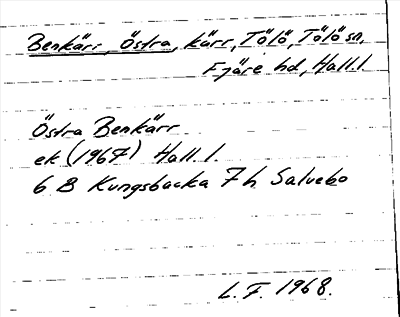 Benkärr, Östra, kärr, Tölö, Tölö sn,
Fjäre hd, Hall. l.
Östra Benkärr
ek (1967) Hall. l.
6 B Kungsbacka 7 h Salvebo
L. F. 1968.